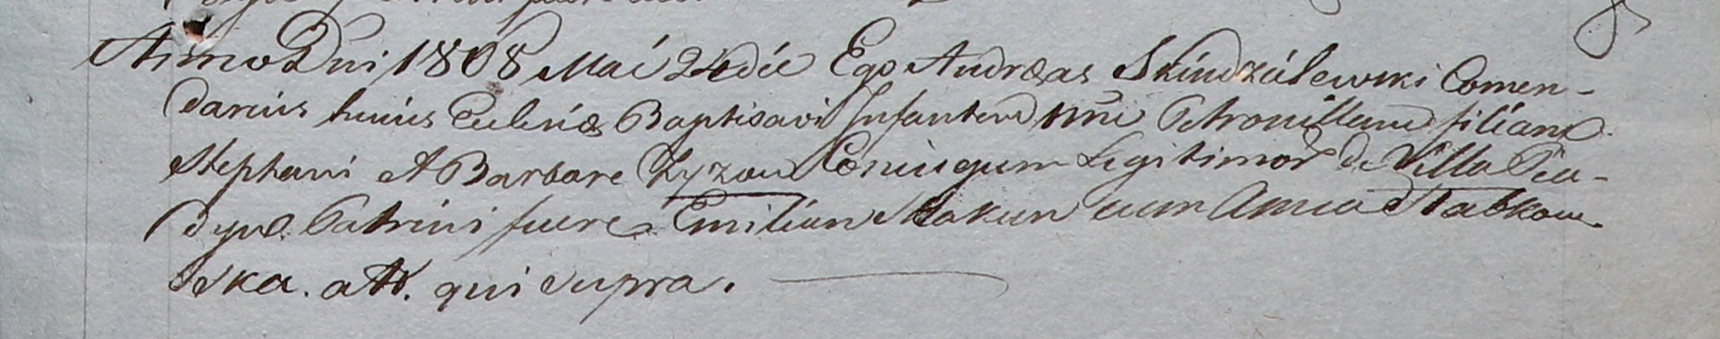 Anno Dni 1808 Mai 24 die Ego Andreas Skindzielewski Comen-
darius huius Eccleriae Baptisavi Infantem nne Petronillam filiam
Stephani et Barbare Zyzow Coniugum Legitimor de Villa
Patrini fuere Emilian Makun cum Anna Stabkow
ska. att. qui supra.